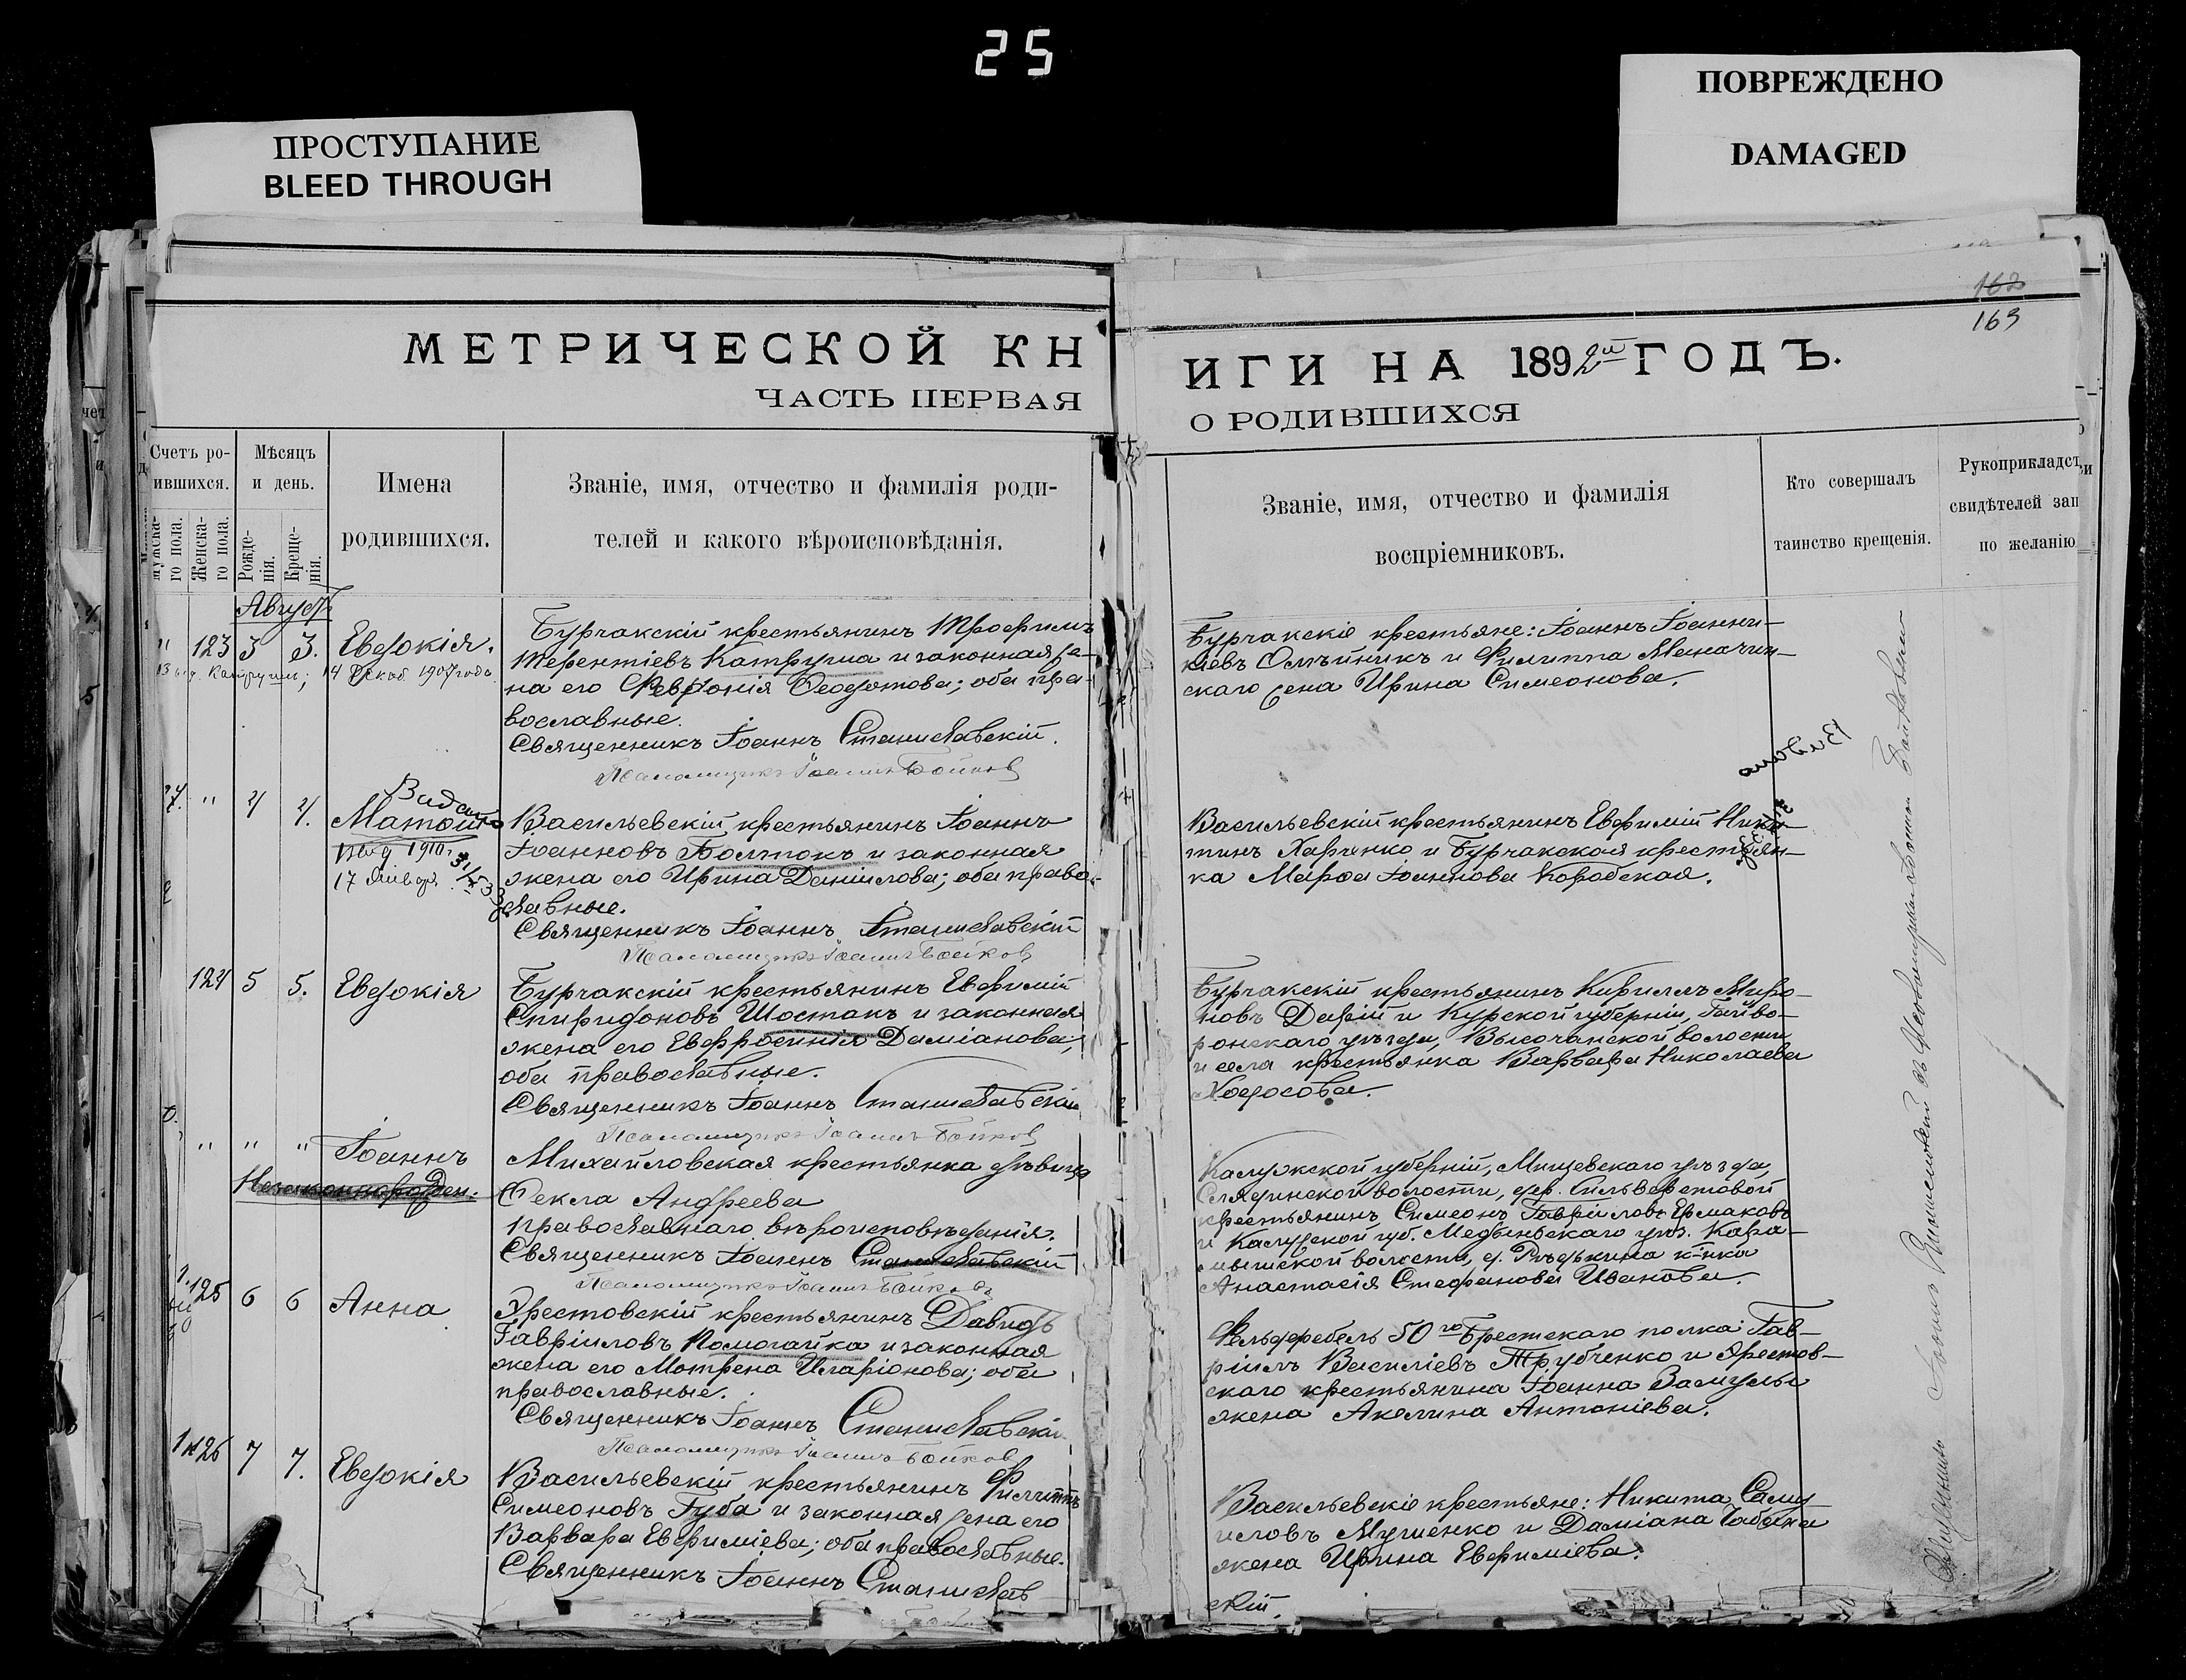 25
ПРОСТУПАНИЕ
BLEED THROUGH
ПОВРЕЖДЕНО
DAMAGED
162
163
МЕТРИЧЕСКОЙ КН
ИГИ НА 1892й ГОДЪ.
ЧАСТЬ ПЕРВАЯ
О РОДИВШИХСЯ
Счетъ ро-
ившихся.
Мѣсяцъ
и день.
Имена
родившихся.
Званіе, имя, отчество и фамилія роди-
телей и какого вѣроисповѣданія.
го пола.
Женска-
го пола.
Рожде-
нія.
Креще-
нія.
Званіе, имя, отчество и фамилія
воспріемниковъ.
Кто совершалъ
таинство крещенія.
Рукоприкладст
свидѣтелей зап
по желанію
Августъ
" 123 3 3. Евдокія.
14 Декаб 1907 года
Бурчакскій крестьянинъ Трофимъ
Терентіевъ Катруша и законная же-
на его Февронія Ѳеодотова; оба пра-
вославные.
Священникъ Іоаннъ Станиславскій.
Псаломщикъ Іоаннъ Бойков
Бурчакскіе крестьяне: Іоаннъ Іоанни-
кіевъ Олѣйникъ и Филиппа
скаго жена Ирина Симеонова.
" 4 4.
Видано
1910 г.
17 Январ.
Васильевскій крестьянинъ Іоаннъ
Іоанновъ Болтокъ и законная
жена его Ирина Даніилова; оба право-
славные.
Священникъ Іоаннъ Станиславскій
Псаломщикъ Іоаннъ Бойков
Видано
Васильевскій крестьянинъ Евфимій Ники-
тинъ Харченко и Бурчакская крестьян-
ка Марфа Іоаннова Коробская.
124 5 5. Евдокія
Бурчакскій крестьянинъ Евфимій
Спиридоновъ Шостакъ и законная
жена его Евфросинія Даміанова;
оба православные.
Священникъ Іоаннъ Станиславскій
Псаломщикъ Іоаннъ Бойков
Бурчакскій крестьянинъ Кириллъ Миро-
новъ Дафій и Курской губерніи, Гайво-
ронскаго уѣзда, Высочанской волости
и села крестьянка Варвара Николаева
Ходосова.
" " " Іоаннъ
Незаконнорожден.
Михайловская крестьянка дѣвица
Ѳекла Андреева
православнаго вѣроисповѣданія.
Священникъ Іоаннъ Станиславскій
Псаломщикъ Іоаннъ Бойковъ
Калужской губерніи, Мещевскаго уѣзда,
волости, дер.
крестьянинъ Симеонъ Гавріиловъ Ермаковъ
и Калужской губ. Медынскаго уѣз. Кара-
волости, д. Рѣдькина к-нка
Анастасія Стефанова Иванова.
125 6 6 Анна
Эрестовскій крестьянинъ Давидъ
Гавріиловъ Помогайка и законная
жена его Мотрена Иларіонова; оба
православные.
Священникъ Іоаннъ Станиславскій
Псаломщикъ Іоаннъ Бойков
Фельдфебель 50го Брестскаго полка Гав-
ріилъ Василіевъ Трубченко и Эрестов-
скаго крестьянина Іоанна
жена Акелина Антоніева.
126 7 7. Евдокія
Васильевскій крестьянинъ Филиппъ
Симеоновъ Губа и законная жена его
Варвара Евфиміева; оба православные.
Священникъ Іоаннъ Станислав
скій.
Васильевскіе крестьяне: Никита Саму
иловъ Мушенко и Даміана
жена Ирина Евфиміева.